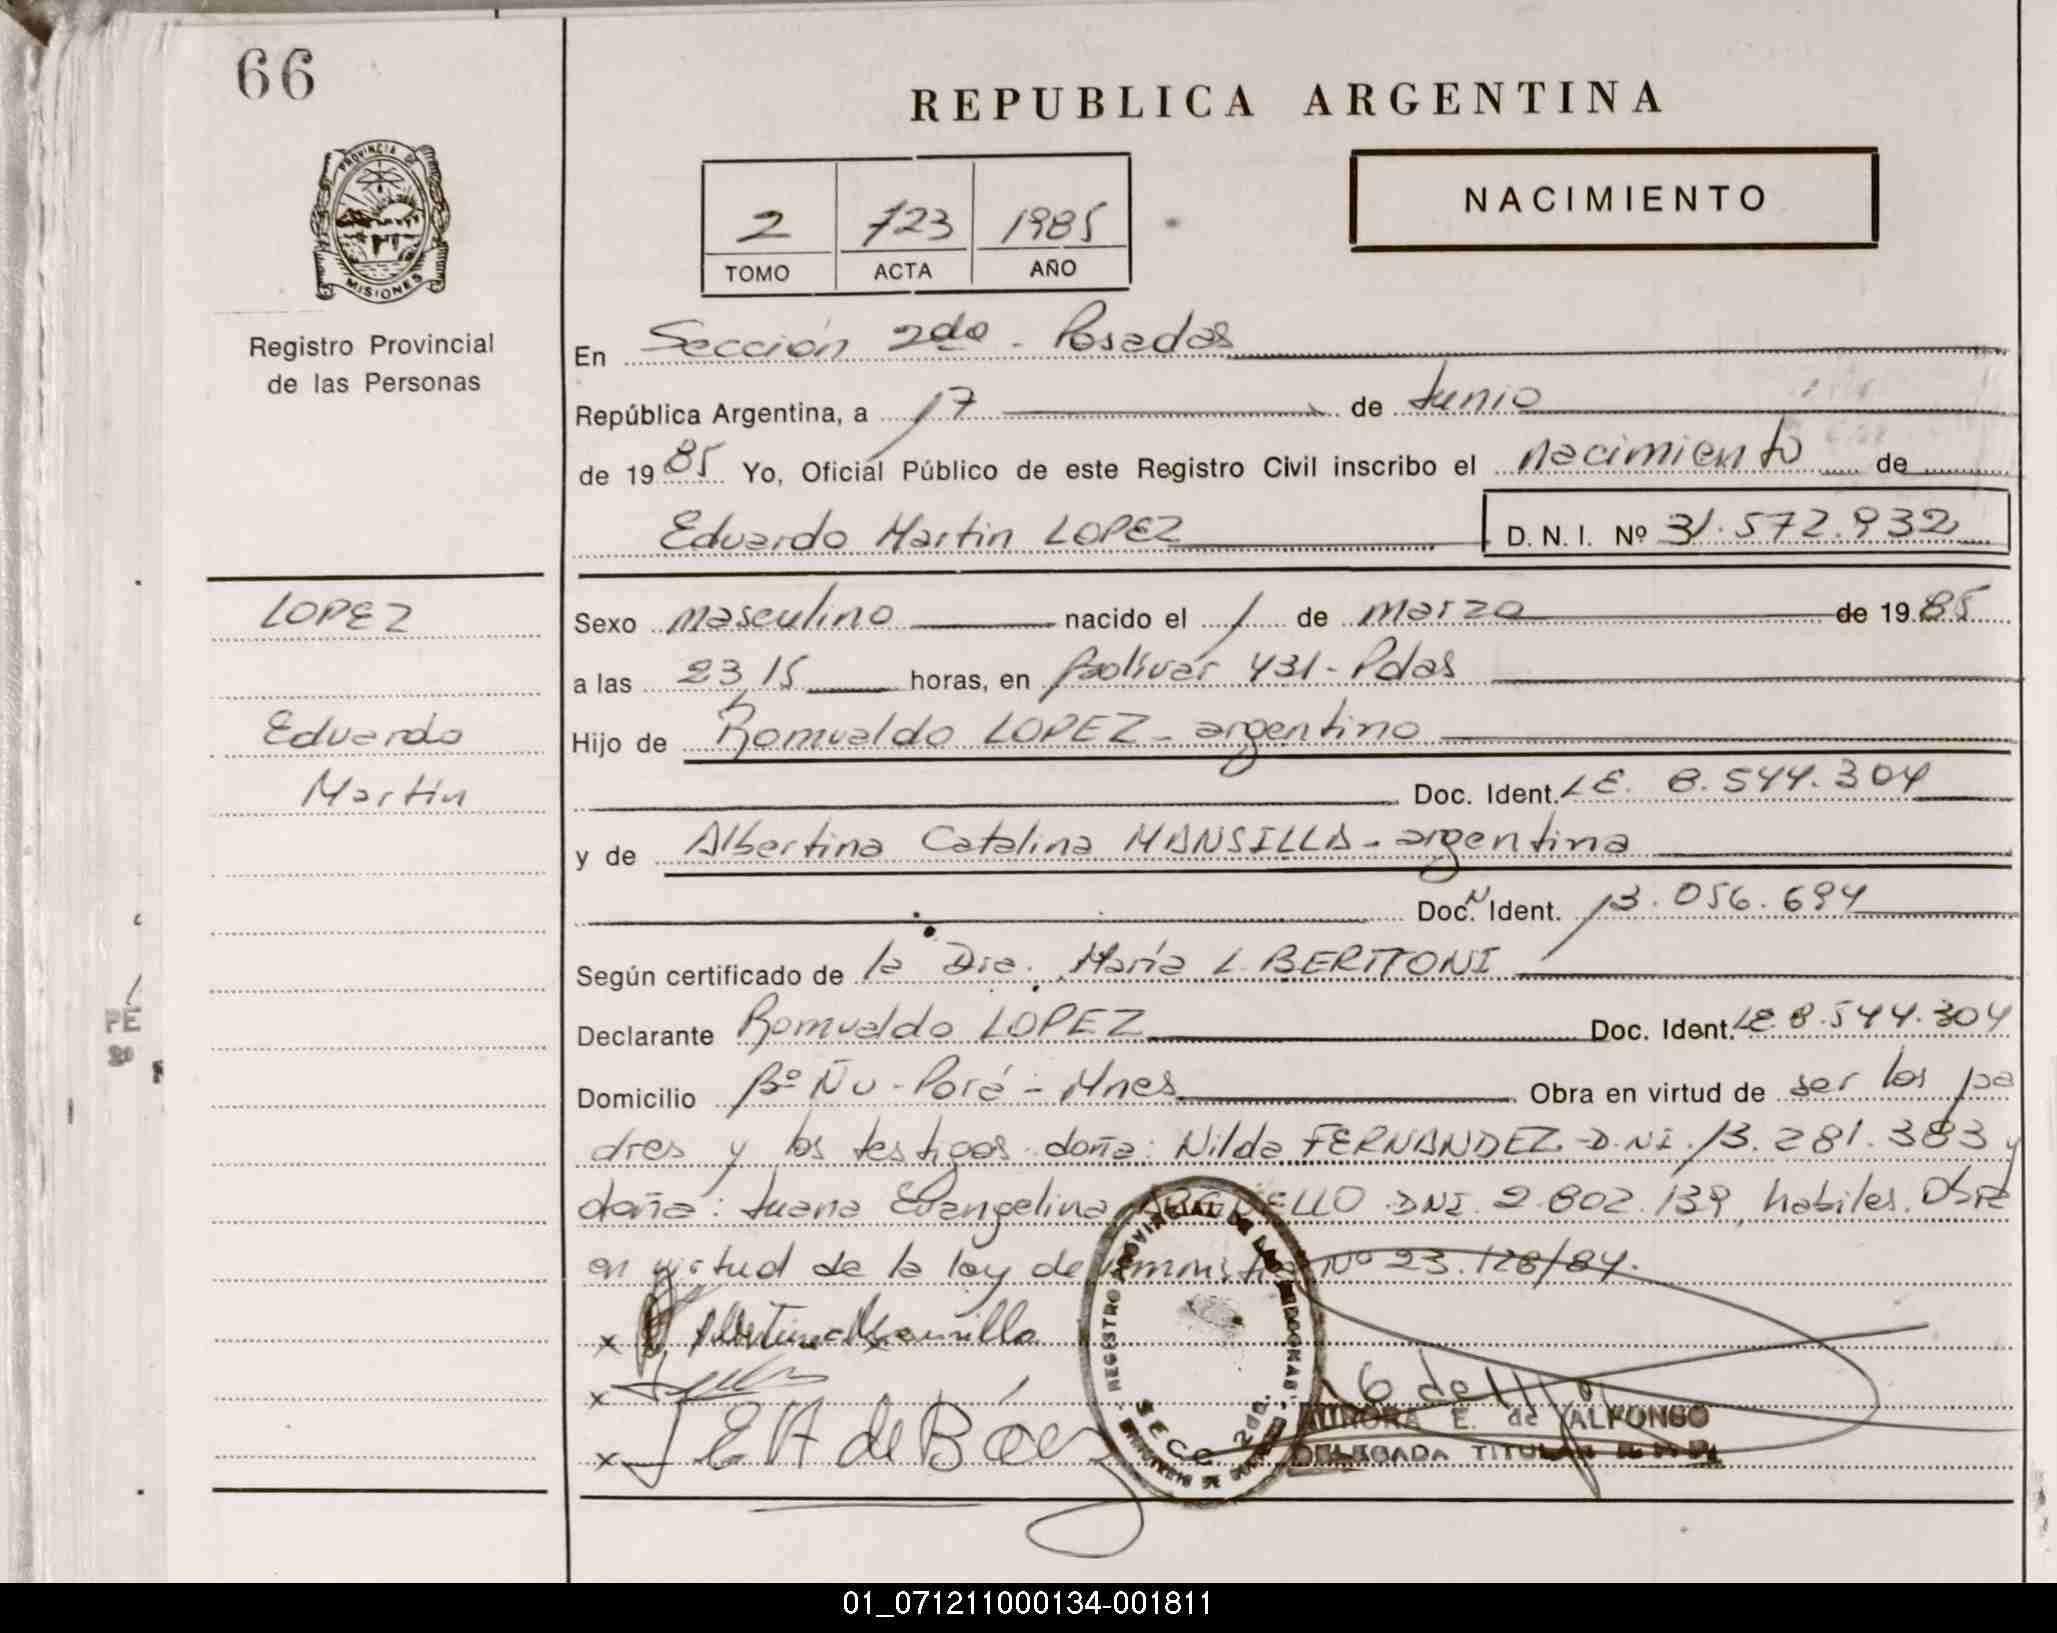 66
REPUBLICA ARGENTINA
NACIMIENTO
2 723 1985
TOMO ACTA AÑO
PROVINCIA DE
MISIONES
Registro Provincial
de las Personas
En Sección 2da - Posadas
República Argentina, a 17 de Junio
de 1985 Yo, Oficial Público de este Registro Civil inscribo el nacimiento de
Eduardo Martin LOPEZ D. N. I. Nº 31.572.932
LOPEZ
Eduardo
Martin
Sexo masculino nacido el 1 de marzo de 1985
a las 23,15 horas, en Bolívar 431 - Pdas
Hijo de Romualdo LOPEZ - argentino
Doc. Ident. LE. 8.544.304
y de Albertina Catalina MANSILLA - argentina
Doc. Ident. 13.056.694
Según certificado de la Dra. María L BERTTONI
Declarante Romualdo LOPEZ Doc. Ident. LE. 8.544.304
Domicilio Bº Ñu - Porá - Mnes Obra en virtud de ser los pa
dres y los testigos doña: Nilda FERNANDEZ - D.N.I. 13.281.383 y
doña: Juana Evangelina DNI. 2.802.139, habiles. Obra
en virtud de la ley de Nº 23.128/84.
x Albertina Mansilla
x
x J E A de Báez
REGISTRO PROVINCIAL DE LAS PERSONAS
SECC 2da.
AURORA E. de ALFONSO
DELEGADA TITULAR
01_071211000134-001811